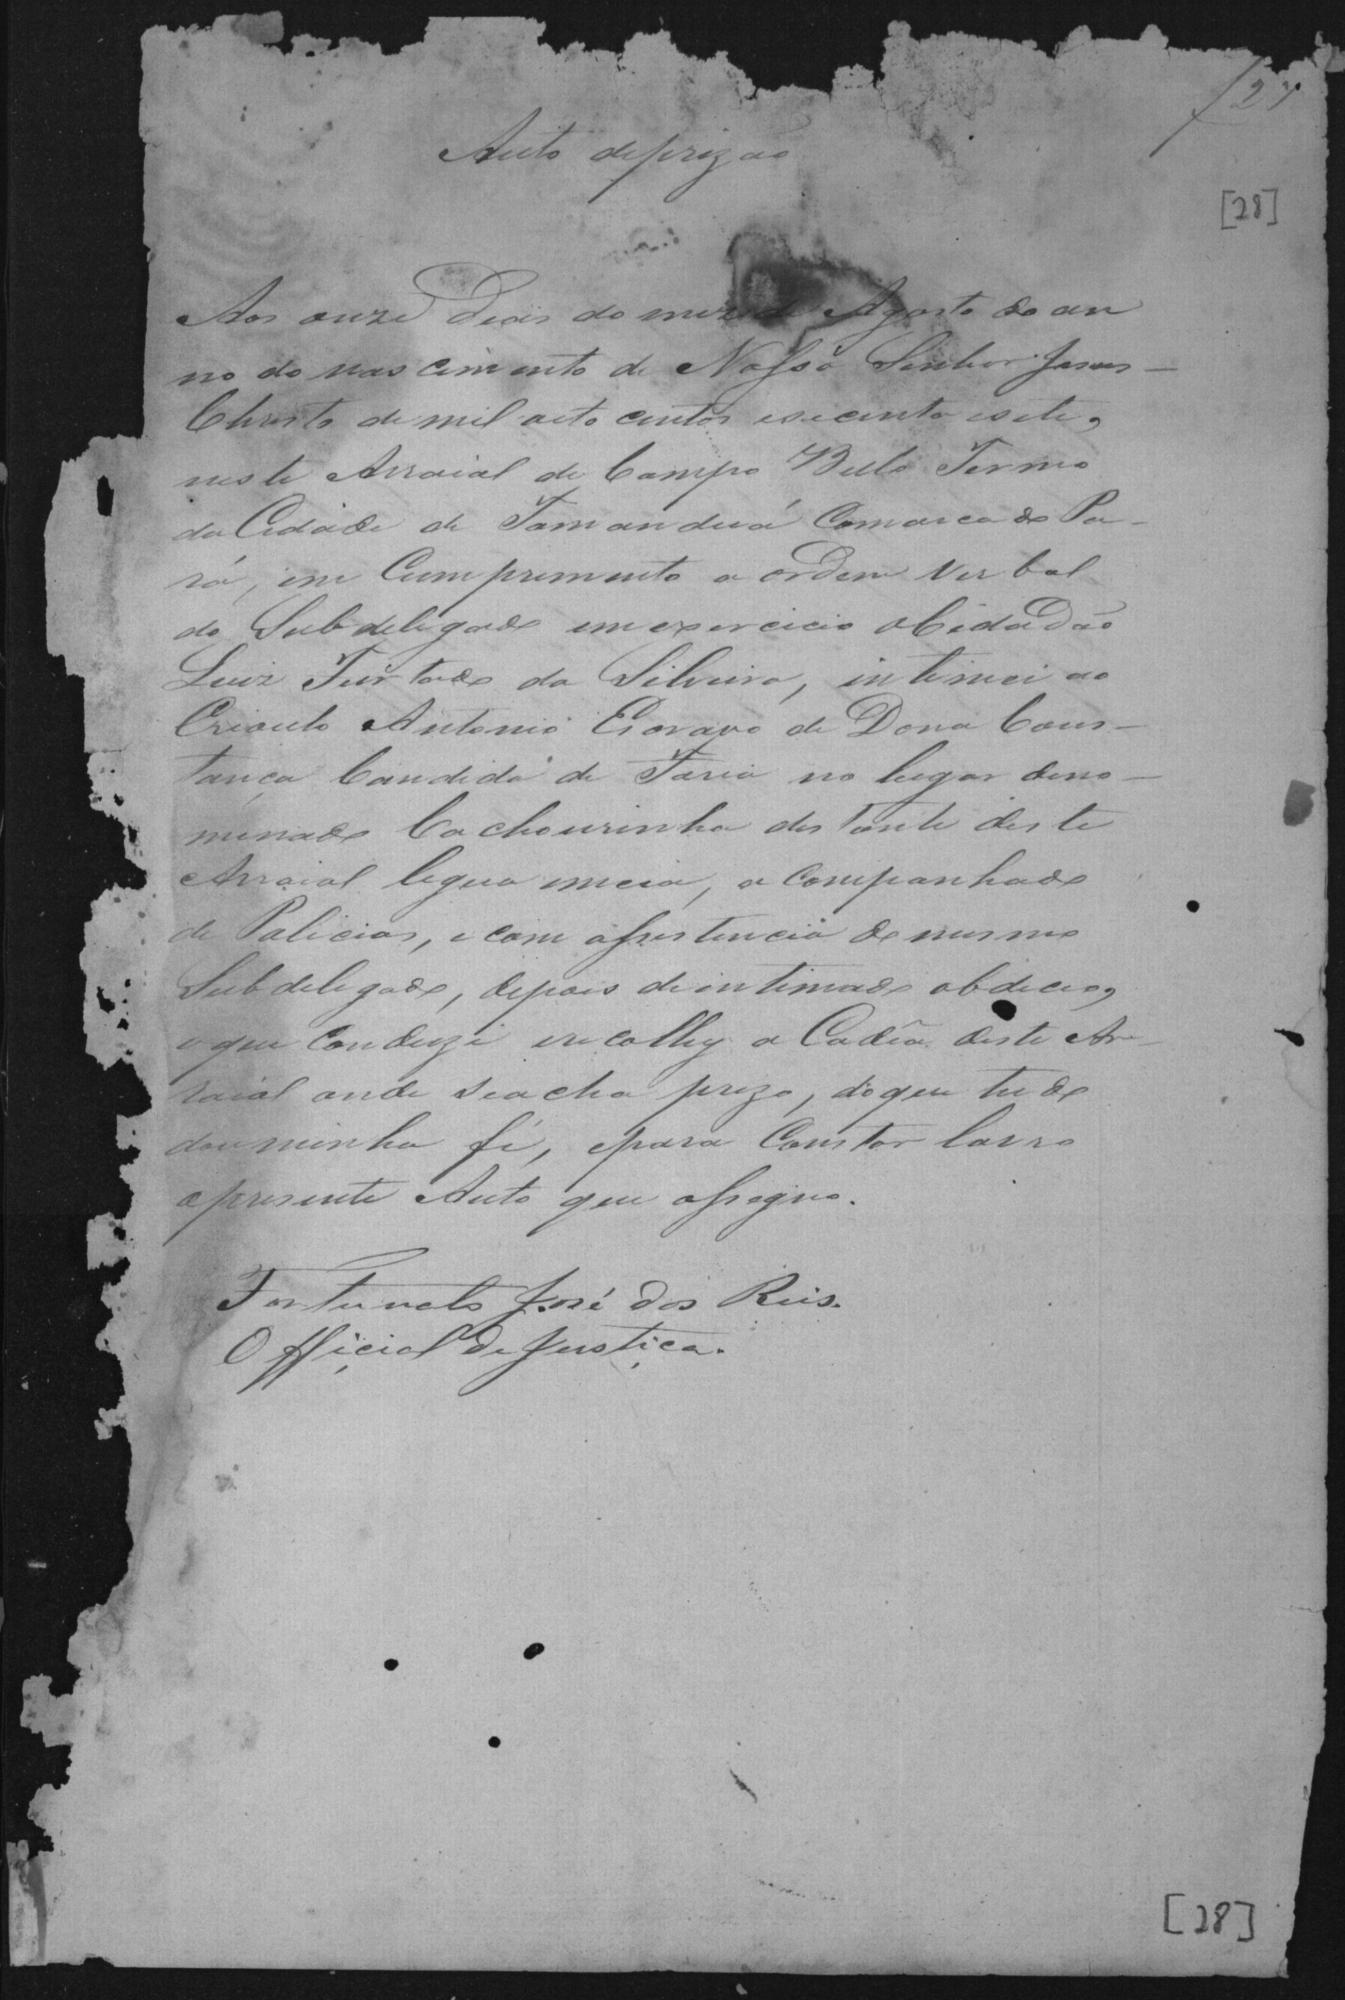 27
Auto deprizão
[28]
Aos onze Dias do mez de Agosto do an
no do nascimento de Nosso Senhor Jesus
Christo de mil oito centos esecenta esete,
neste Arraial de Campo Bello Termo
da Cidade de Tamanduá Comarca do Pa-
rá, em Cumprimento a ordem verbal
do Subdelegado em exercicio oCidadão
Luiz Furtado da Silveira, intimei ao
Crioulo Antonio Escravo de Dona Cons-
tança Candida de Faria no lugar deno-
minado Cachoeirinha distante deste
Arraial legua emeia, acompanhado
de Policias, ecom assistencia do mesmo
Subdelegado, depois deintimado obdeceo,
oque Conduzi erecolhy a Cadêa deste Ar-
raial onde seacha prezo, doque tudo
douminha fé, epara Constar lavro
opresente Auto que assigno.
Fortunato José dos Reis.
Official de Justiça.
[28]